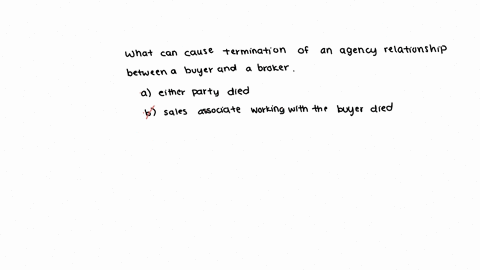 What can cause termination of an agency relationship
between a buyer and a broker.
a) either party died
b) sales associate working with the buyer died